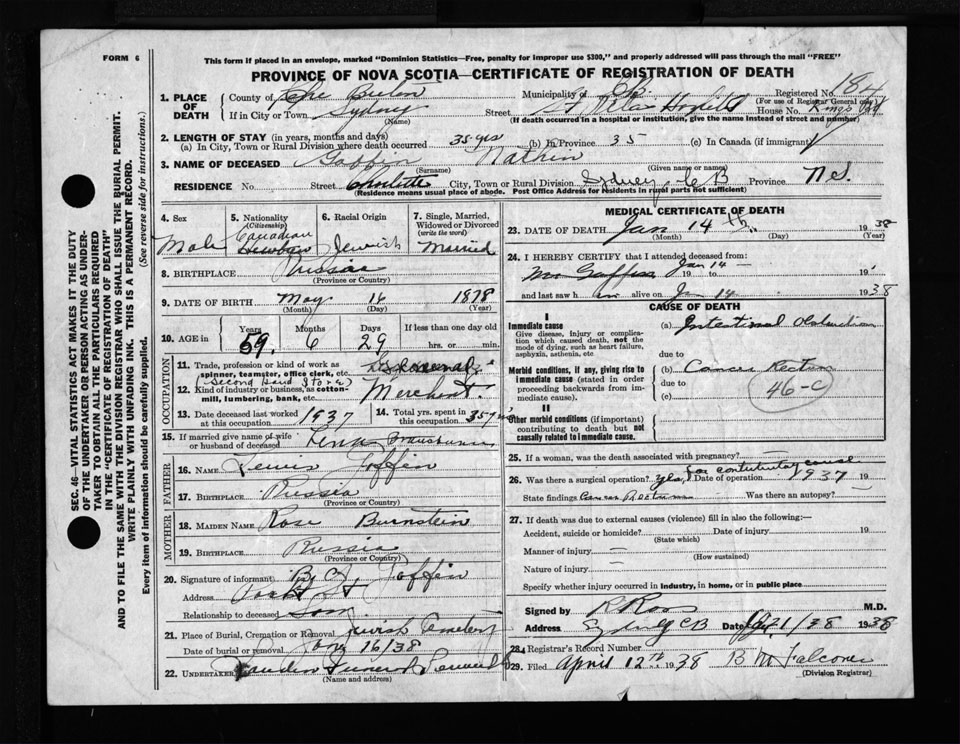 FORM 6
This form if placed in an envelope, marked "Dominion Statistics—Free, penalty for improper use $300," and properly addressed will pass through the mail "FREE"
PROVINCE OF NOVA SCOTIA—CERTIFICATE OF REGISTRATION OF DEATH
SEC. 46—VITAL STATISTICS ACT MAKES IT THE DUTY
OF THE UNDERTAKER OR PERSON ACTING AS UNDER-
TAKER TO OBTAIN ALL THE PARTICULARS REQUIRED
IN THE "CERTIFICATE OF REGISTRATION OF DEATH"
AND TO FILE THE SAME WITH THE DIVISION REGISTRAR WHO SHALL ISSUE THE BURIAL PERMIT.
WRITE PLAINLY WITH UNFADING INK. THIS IS A PERMANENT RECORD.
Every item of information should be carefully supplied. (See reverse side for instructions.)
1. PLACE OF DEATH
County of Cape Breton Municipality of C.B. Registered No. 184
(For use of Registrar General only)
If in City or Town Sydney Street St Ritas Hospital House No. Kings Rd
(Name)
(If death occurred in a hospital or institution, give the name instead of street and number)
2. LENGTH OF STAY (in years, months and days)
(a) In City, Town or Rural Division where death occurred 35 yrs (b) In Province 35 (c) In Canada (if immigrant)
3. NAME OF DECEASED Goffin Nathin
(Surname) (Given name or names)
RESIDENCE No. Street Charlotte City, Town or Rural Division Sydney, C B Province N.S.
(Residence means usual place of abode. Post Office Address for residents in rural parts not sufficient)
4. Sex
Male
5. Nationality (Citizenship)
Canadian
6. Racial Origin
Jewish
7. Single, Married, Widowed or Divorced (write the word)
Married
8. BIRTHPLACE Russia
(Province or Country)
9. DATE OF BIRTH May 16 1878
(Month) (Day) (Year)
10. AGE in
Years Months Days If less than one day old
59 6 29 hrs. or min.
OCCUPATION
11. Trade, profession or kind of work as spinner, teamster, office clerk, etc.
(Second Hand Store)
12. Kind of industry or business, as cotton-mill, lumbering, bank, etc. Merchant.
13. Date deceased last worked at this occupation 1937
14. Total yrs. spent in this occupation 35 yrs
15. If married give name of wife or husband of deceased Lena
FATHER
16. NAME Lewis Goffin
17. BIRTHPLACE Russia
(Province or Country)
MOTHER
18. MAIDEN NAME Rose Burnstein
19. BIRTHPLACE Russia
(Province or Country)
20. Signature of informant Goffin
Address
Relationship to deceased Son
21. Place of Burial, Cremation or Removal Jewish Cemetery
Date of burial or removal Jany 16/38
22. UNDERTAKER Funeral
(Name and address)
MEDICAL CERTIFICATE OF DEATH
23. DATE OF DEATH Jan 14th 1938
(Month) (Day) (Year)
24. I HEREBY CERTIFY that I attended deceased from:
Mr Goffin Jan 14 — 19 to 19
and last saw him alive on Jan 14 1938
CAUSE OF DEATH
I
Immediate cause
Give disease, injury or complication which caused death, not the mode of dying, such as heart failure, asphyxia, asthenia, etc
(a) Intestinal Obstruction
due to
Morbid conditions, if any, giving rise to immediate cause (stated in order proceeding backwards from immediate cause).
(b) Cancer Rectum
due to
(c) 46-C
II
Other morbid conditions (if important) contributing to death but not causally related to immediate cause.
25. If a woman, was the death associated with pregnancy?
for contributary cause
26. Was there a surgical operation? Yes, Date of operation 1937 19
State findings Cancer Rectum Was there an autopsy?
27. If death was due to external causes (violence) fill in also the following:—
Accident, suicide or homicide? Date of injury 19
(State which)
Manner of injury —
(How sustained)
Nature of injury —
Specify whether injury occurred in industry, in home, or in public place
Signed by R Ross M.D.
Address Sydney CB Date 21/38 1938
28. Registrar's Record Number
29. Filed April 12th 1938 B M Falconer
(Division Registrar)